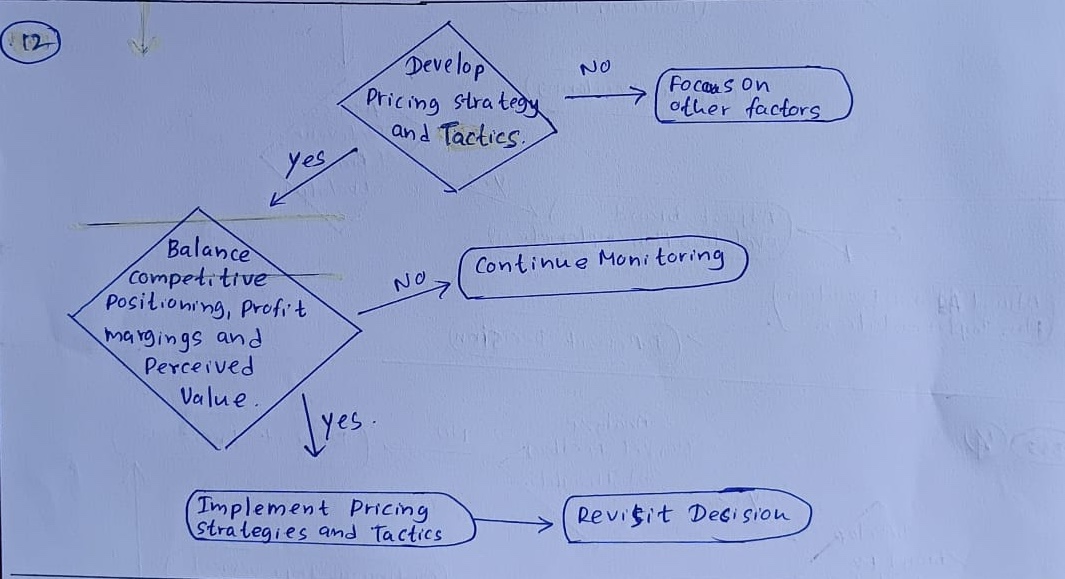 12
Develop
Pricing strategy
and Tactics.
NO
Focus on
other factors
Yes
Balance
competitive
Positioning, Profit
margings and
Perceived
Value.
NO
Continue Monitoring
Yes.
Implement Pricing
strategies and Tactics
Revisit Decision